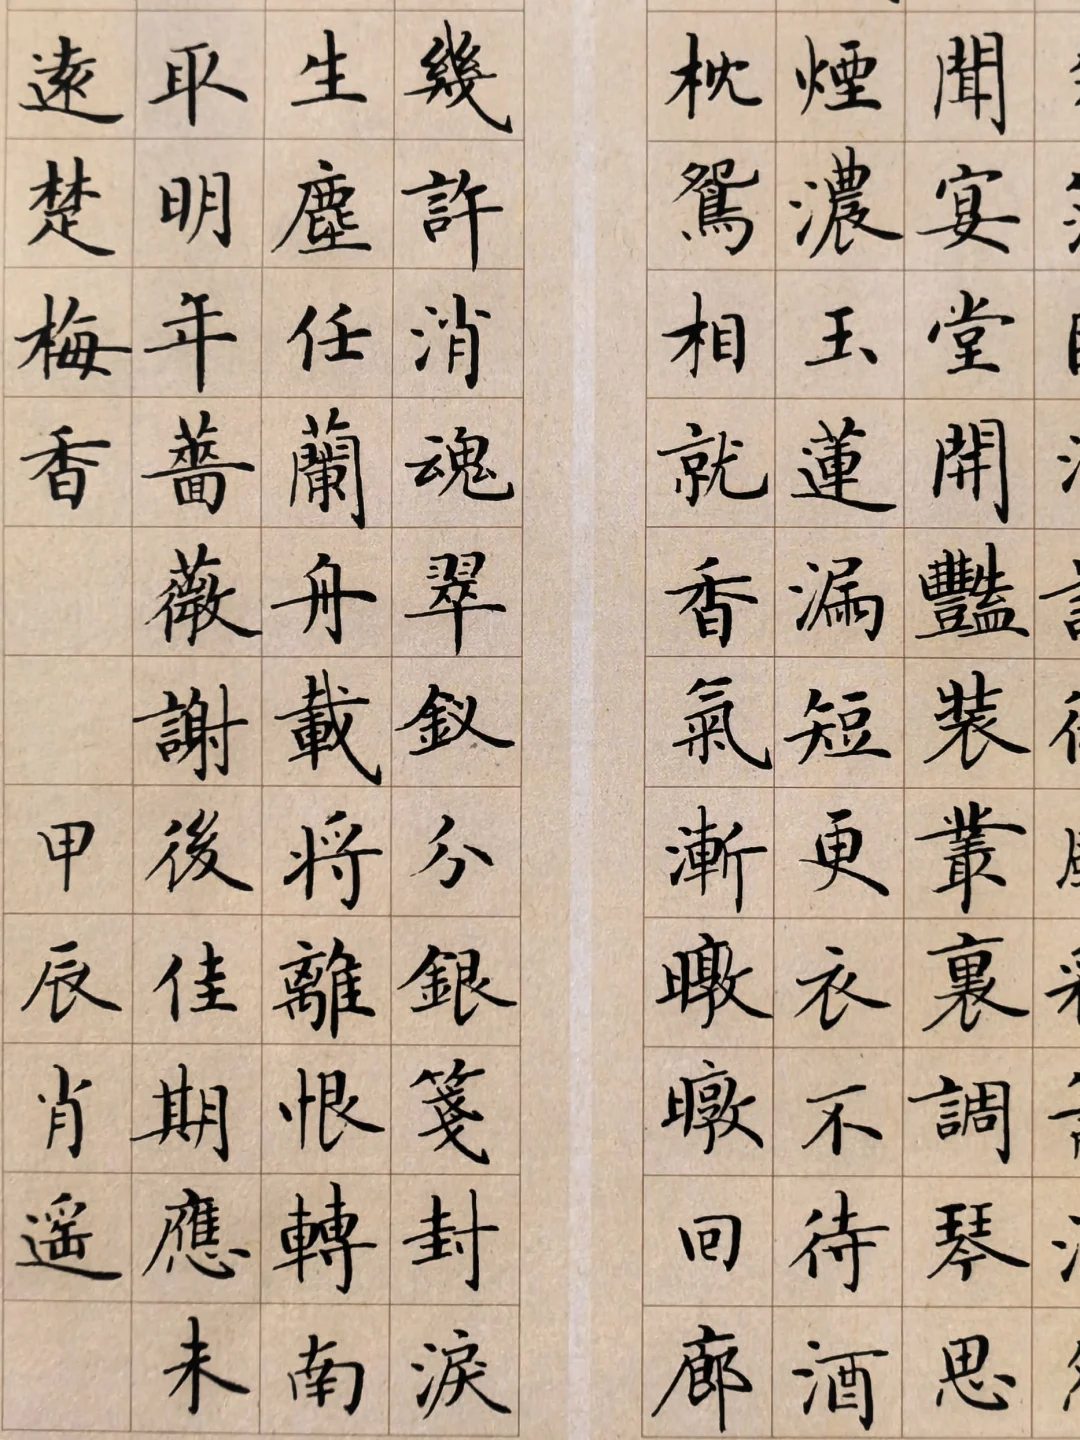 聞宴堂開豔裝叢裏調琴思
煙濃玉蓮漏短更衣不待酒
枕鴛相就香氣漸暾暾回廊
幾許消魂翠釵分銀箋封淚
生塵任蘭舟載將離恨轉南
取明年薔薇謝後佳期應未
遠楚梅香
甲辰肖遥